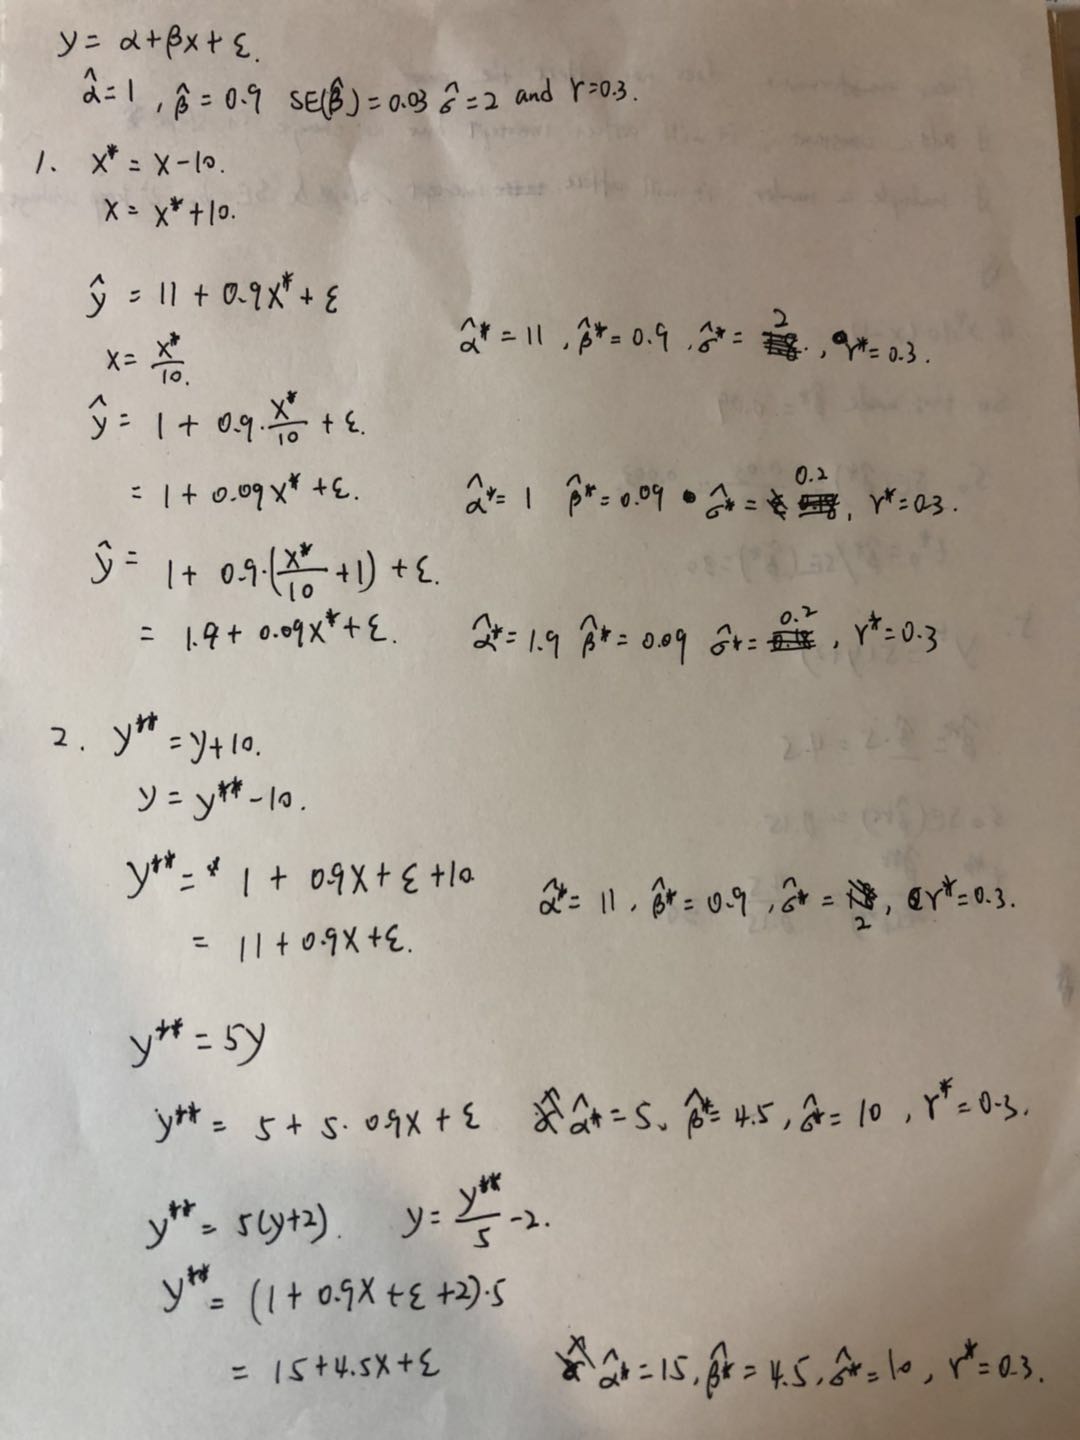 y = α+βx+ε.
α̂=1 , β̂ = 0.9 SE(β̂)=0.03 σ̂=2 and r=0.3.
1. x* = x-10.
x = x*+10.
ŷ = 11 + 0.9x* + ε
α̂* = 11 , β̂* = 0.9 , σ̂* = 2 , r* = 0.3.
x = x*/10.
ŷ = 1 + 0.9·x*/10 + ε.
= 1 + 0.09x* + ε. α̂* = 1 β̂* = 0.09 σ̂* = 0.2, r* = 0.3.
ŷ = 1 + 0.9·(x*/10 + 1) + ε.
= 1.9 + 0.09x* + ε. α̂* = 1.9 β̂* = 0.09 σ̂* = 0.2, r* = 0.3
2. y** = y+10.
y = y** - 10.
y** = 1 + 0.9x + ε + 10
α̂* = 11 , β̂* = 0.9 , σ̂* = 2, r* = 0.3.
= 11 + 0.9x + ε.
y** = 5y
y** = 5 + 5·0.9x + ε α̂* = 5, β̂* = 4.5, σ̂* = 10 , r* = 0.3.
y** = 5(y+2). y = y**/5 - 2.
y** = (1 + 0.9x + ε + 2)·5
= 15 + 4.5x + ε α̂* = 15, β̂* = 4.5, σ̂* = 10, r* = 0.3.